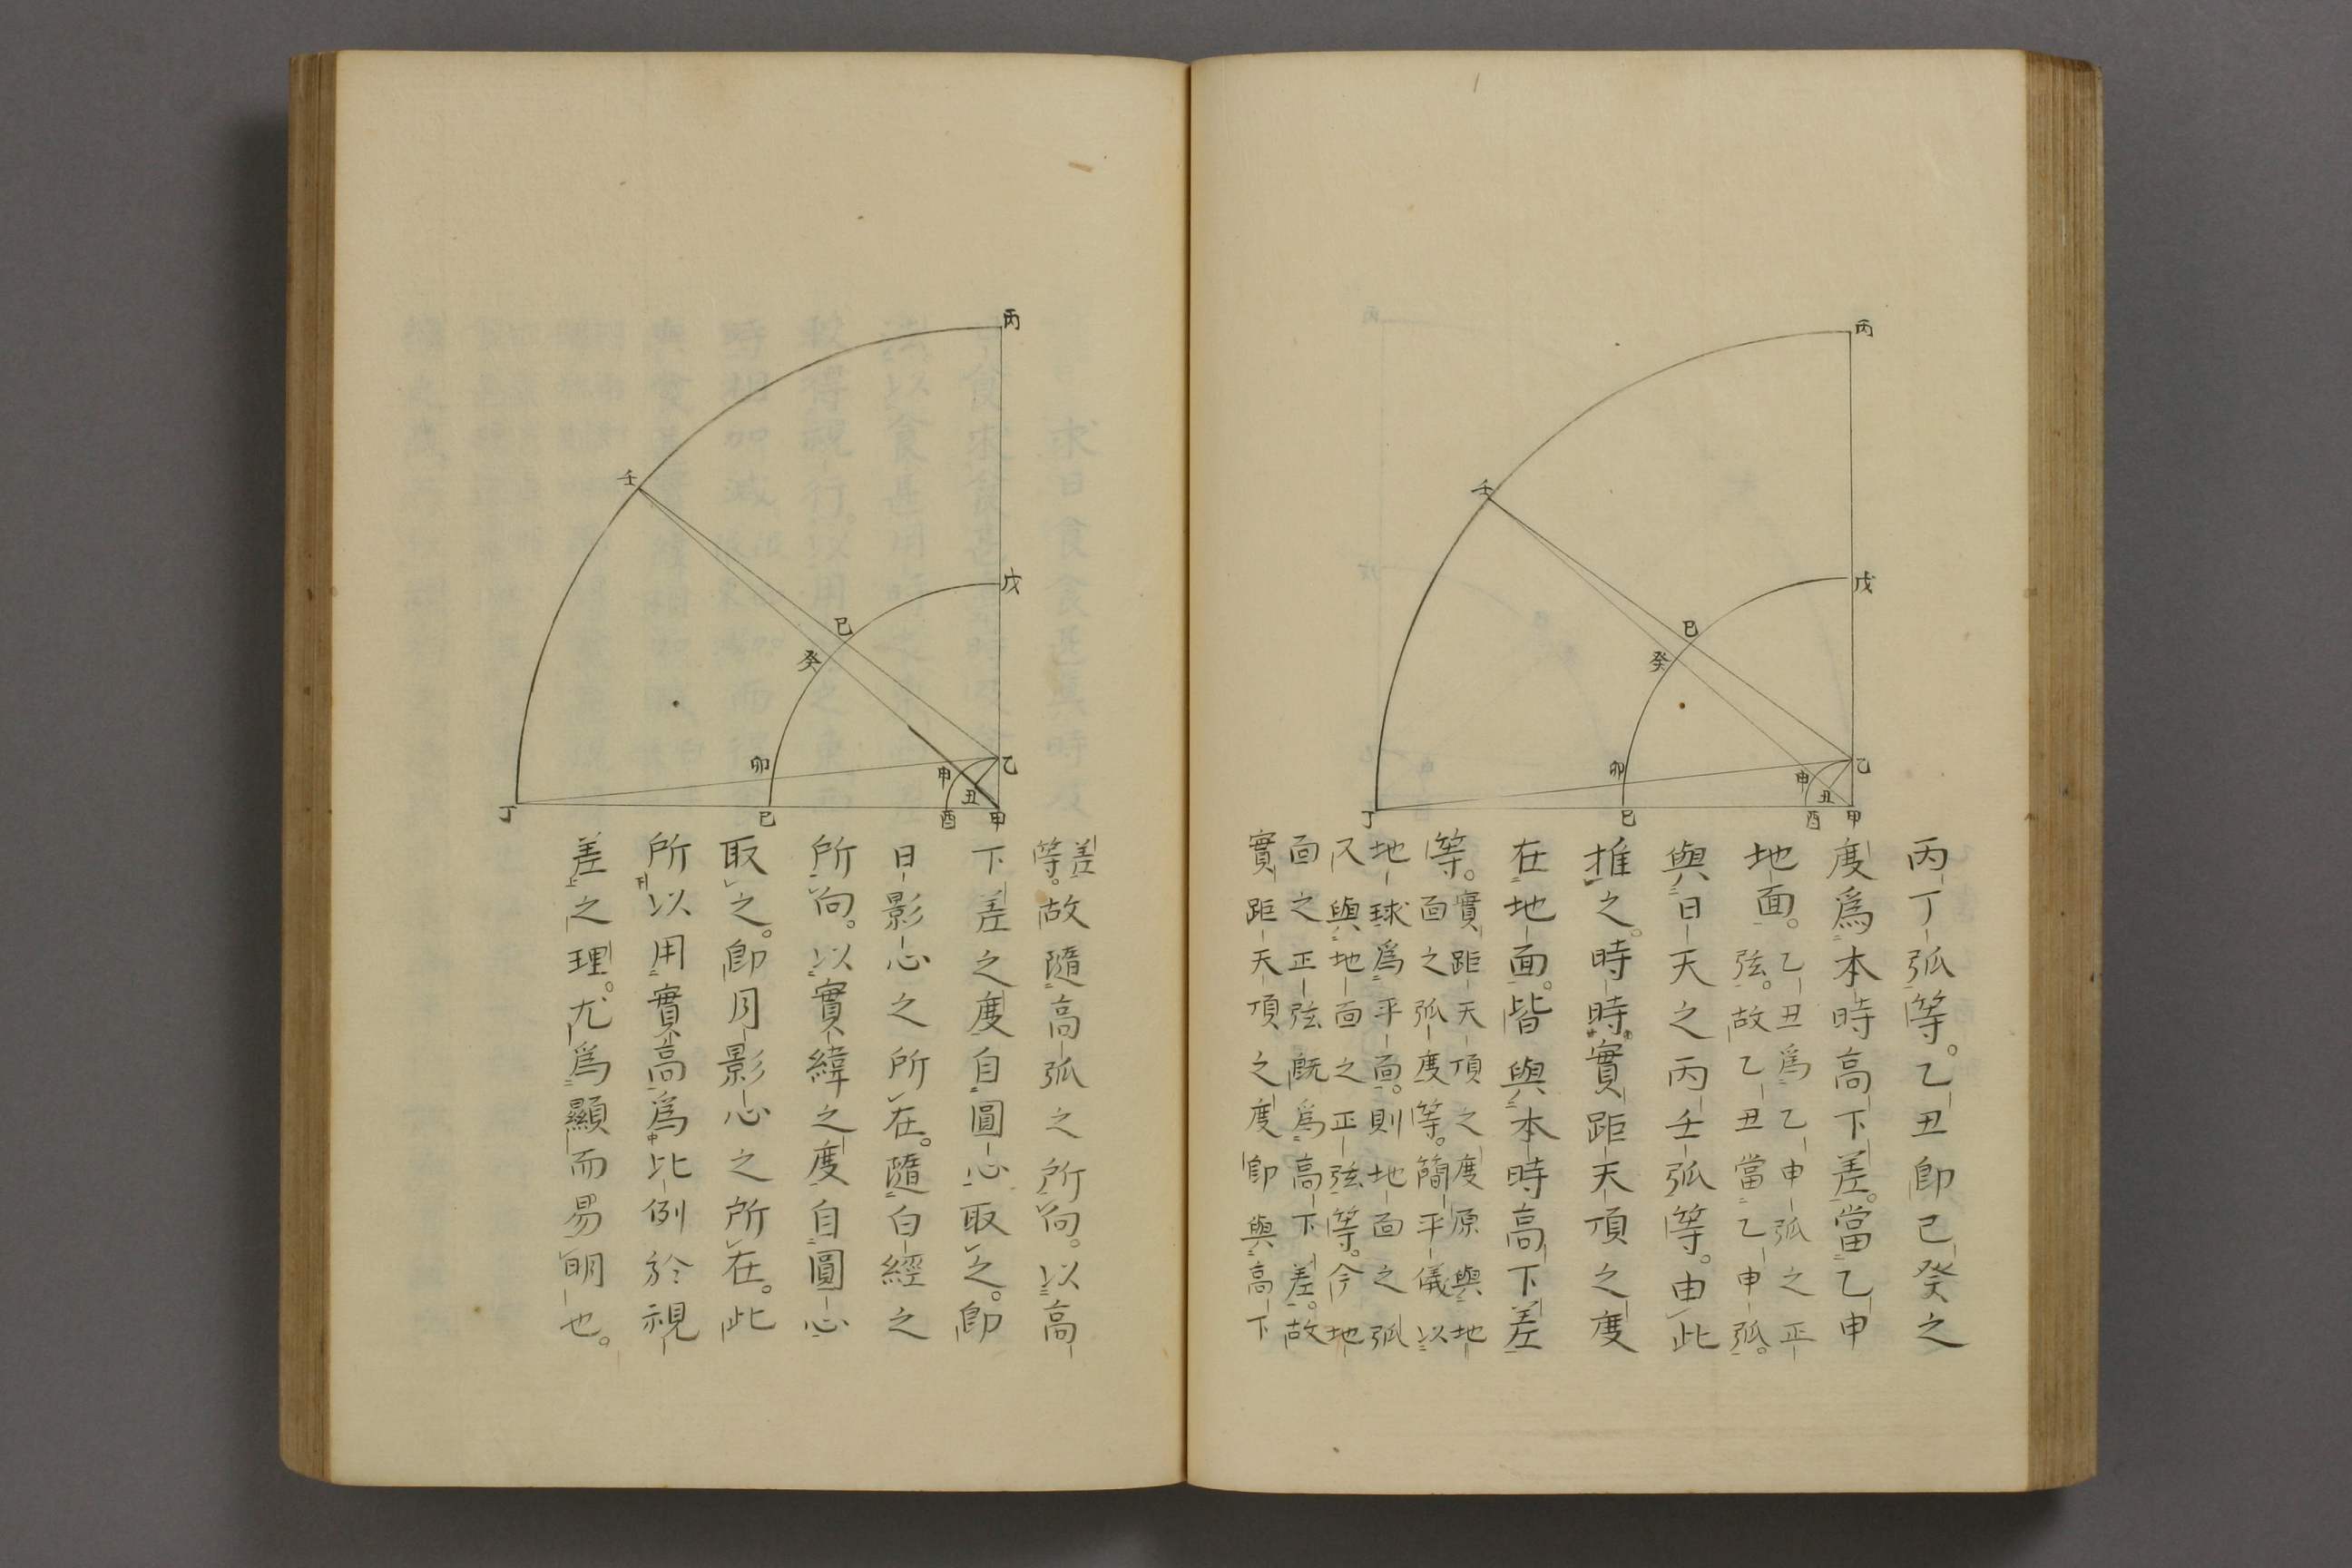 丙
壬
戊
巳
癸
乙
卯
申
丑
甲
酉
己
丁
丙丁弧等。乙丑卽巳癸之
度爲本時高下差。當乙申
地面。乙丑爲乙申弧之正
弦。故乙丑當乙申弧。
與日天之丙壬弧等。由此
推之。時時實距天頂之度
在地面。皆與本時高下差
等。實距天頂之度原與地
面之弧度等。簡平儀以
地球爲平面。則地面之弧
又與地面之正弦等。今地
面之正弦既爲高下差。故
實距天頂之度卽與高下
丙
壬
戊
巳
癸
乙
卯
申
丑
甲
酉
己
丁
差
等。故隨高弧之所向。以高
下差之度自圓心取之。卽
日影心之所在。隨白經之
所向。以實緯之度自圓心
取之。卽月影心之所在。此
所以用實高爲比例於視
差之理。尤爲顯而易明也。